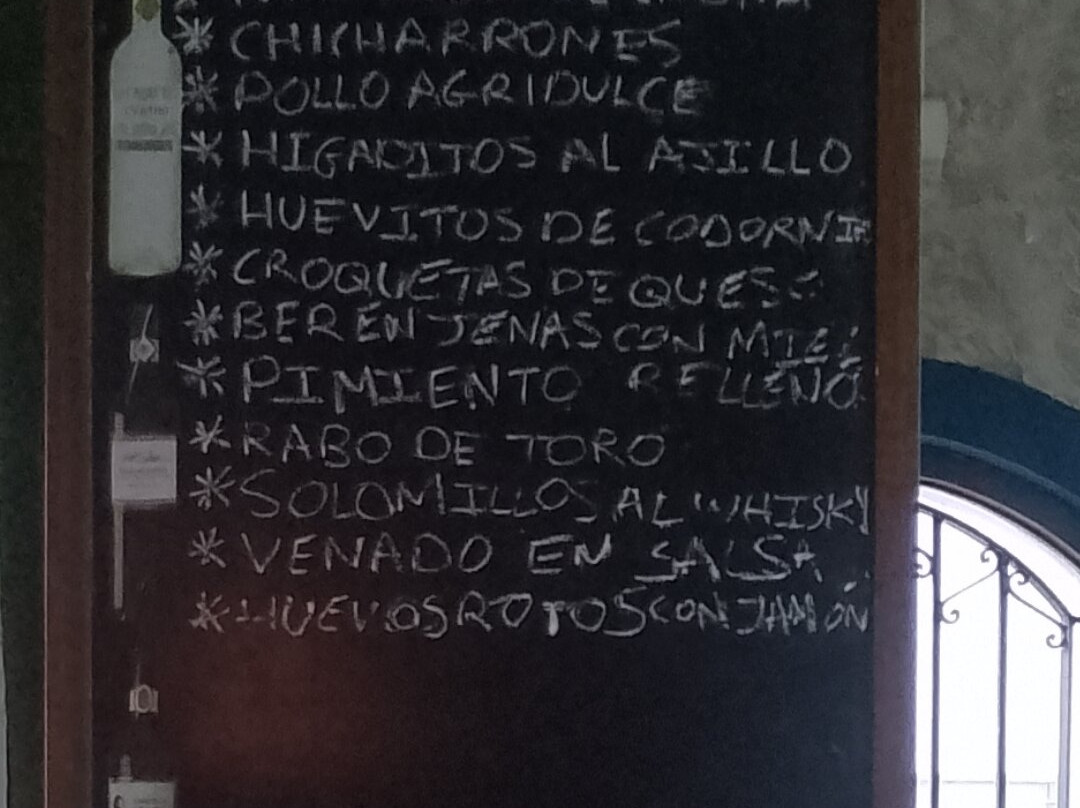 * CHICHARRONES
* POLLO AGRIDULCE
* HIGADITOS AL AJILLO
* HUEVITOS DE CODORNIZ
* CROQUETAS DE QUESO
* BERENJENAS CON MIEL
* PIMIENTO RELLENO
* RABO DE TORO
* SOLOMILLOS AL WHISKY
* VENADO EN SALSA
* HUEVOS ROTOS CON JAMÓN